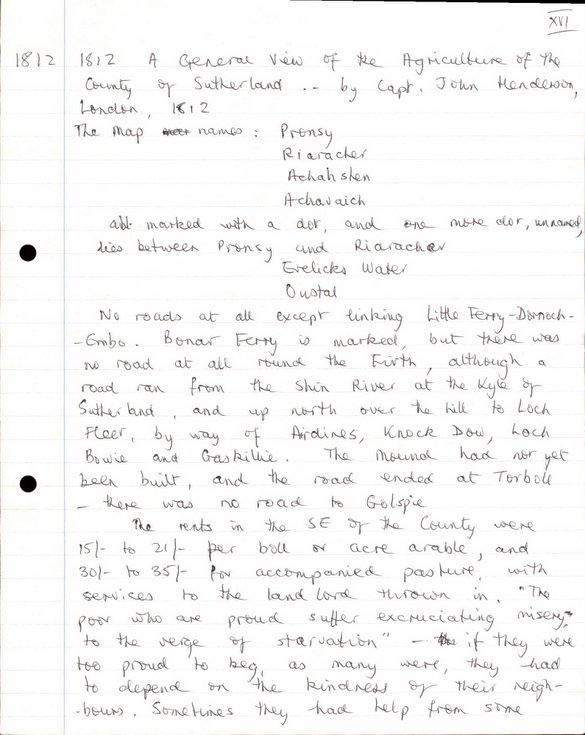 XVI
1812 1812 A General View of the Agriculture of the
County of Sutherland .. - by Capt. John Henderson,
London, 1812
The map names : Pronsy
Riaracher
Achahshen
Achavaich
all marked with a dot, and one more dot, unnamed,
lies between Pronsy and Riaracher
Evelicks Water
Oustal
No roads at all except linking Little Ferry-Dornoch-
-Embo. Bonar Ferry is marked, but there was
no road at all round the Firth, although a
road ran from the Shin River at the Kyle of
Sutherland, and up north over the hill to Loch
Fleet, by way of Airdines, Knock Dow, Loch
Bowie and Gaskillie. The Mound had not yet
been built, and the road ended at Torboll
- there was no road to Golspie
The rents in the SE of the County were
15/- to 21/- per boll or acre arable, and
30/- to 35/- for accompanied pasture, with
services to the landlord thrown in. "The
poor who are proud suffer excruciating misery,
to the verge of starvation" - if they were
too proud to beg, as many were, they had
to depend on the kindness of their neigh-
-bours. Sometimes they had help from some